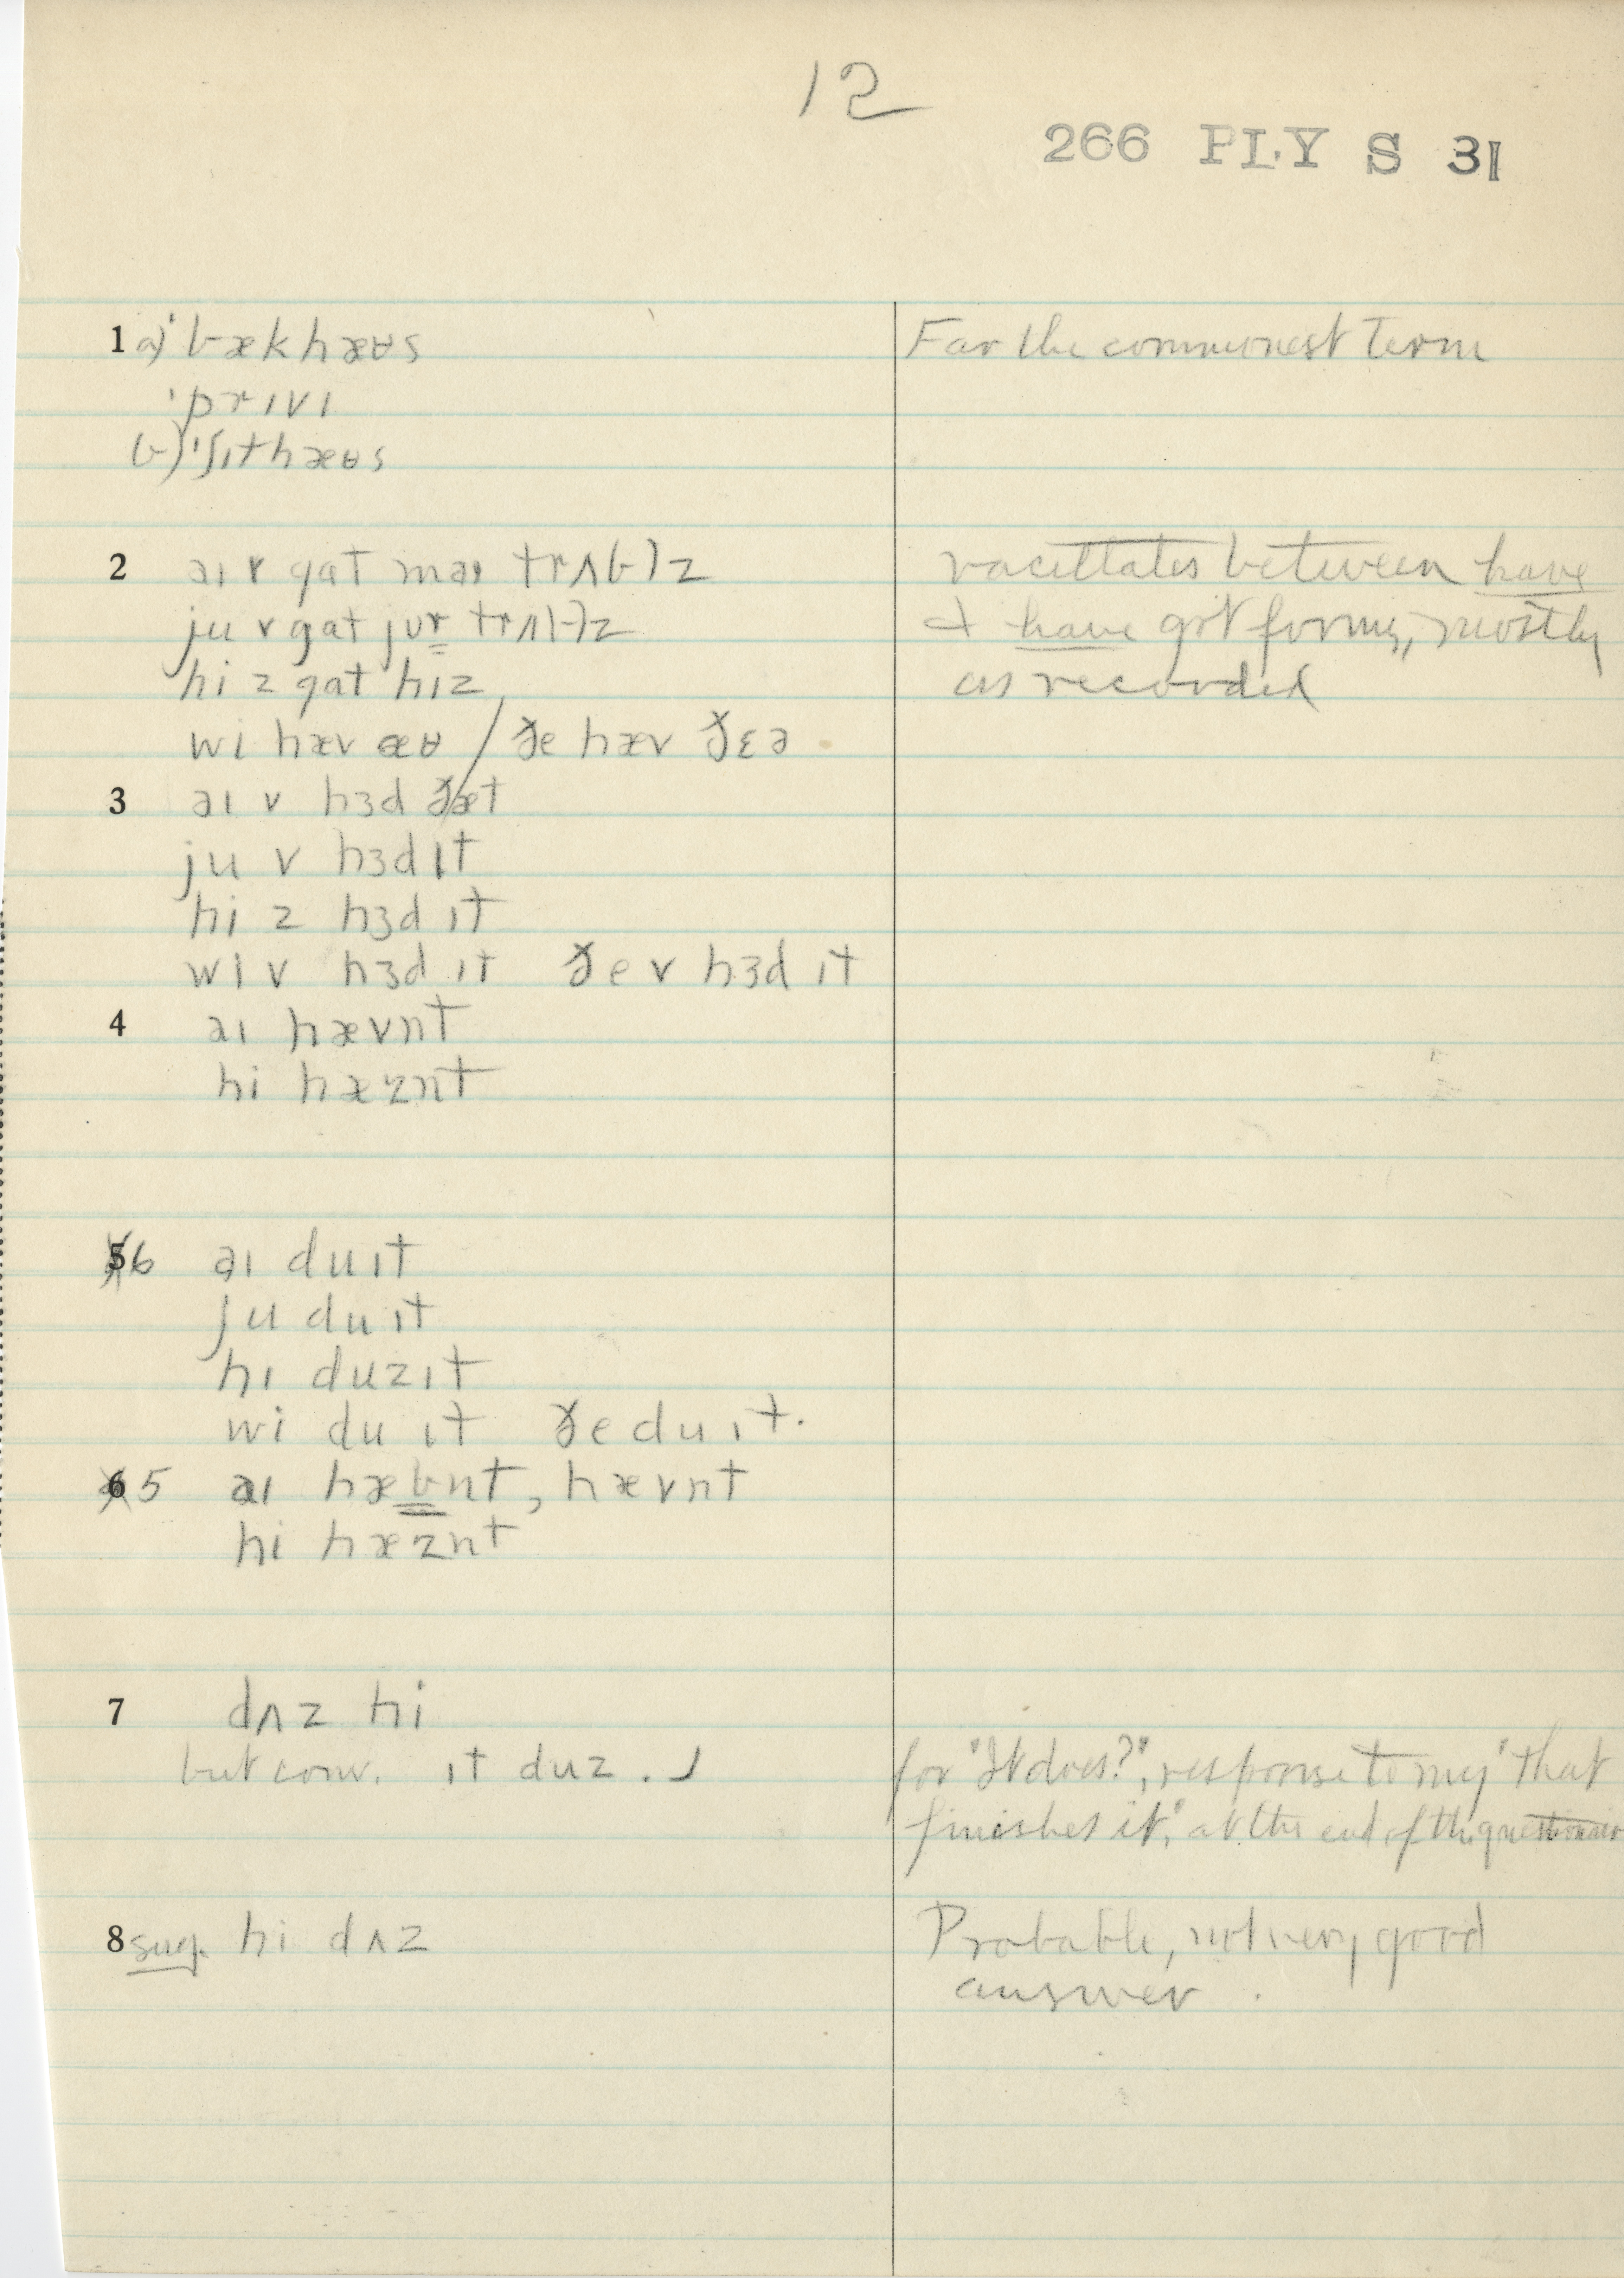 12
266 PLY S 31
1 a) ˈbækhæʉs
For the commonest term
ˈprɪvɪ
b) ˈʃɪthæʉs
2 aɪ v gat maɪ trʌb]z
vacillates between have
ju v gat jʊr trʌb]z
& have got forms, mostly
hi z gat hɪz
as recorded
wi hæv æʉ / ðe hæv ðɛə
3 aɪ v hɜd ðæt
ju v hɜd ɪt
hi z hɜd ɪt
wi v hɜd ɪt ðe v hɜd ɪt
4 aɪ hævnt
hi hæznt
6 aɪ du ɪt
ju du ɪt
hi duz ɪt
wi du ɪt ðe du ɪt.
5 aɪ hæbnt, hævnt
hi hæznt
7 dʌz hi
but conv. ɪt duz . ⌟
for "It does?", response to my "that
finishes it", at the end of the questionnaire
8 sug. hi dʌz
Probable, not very good
answer .